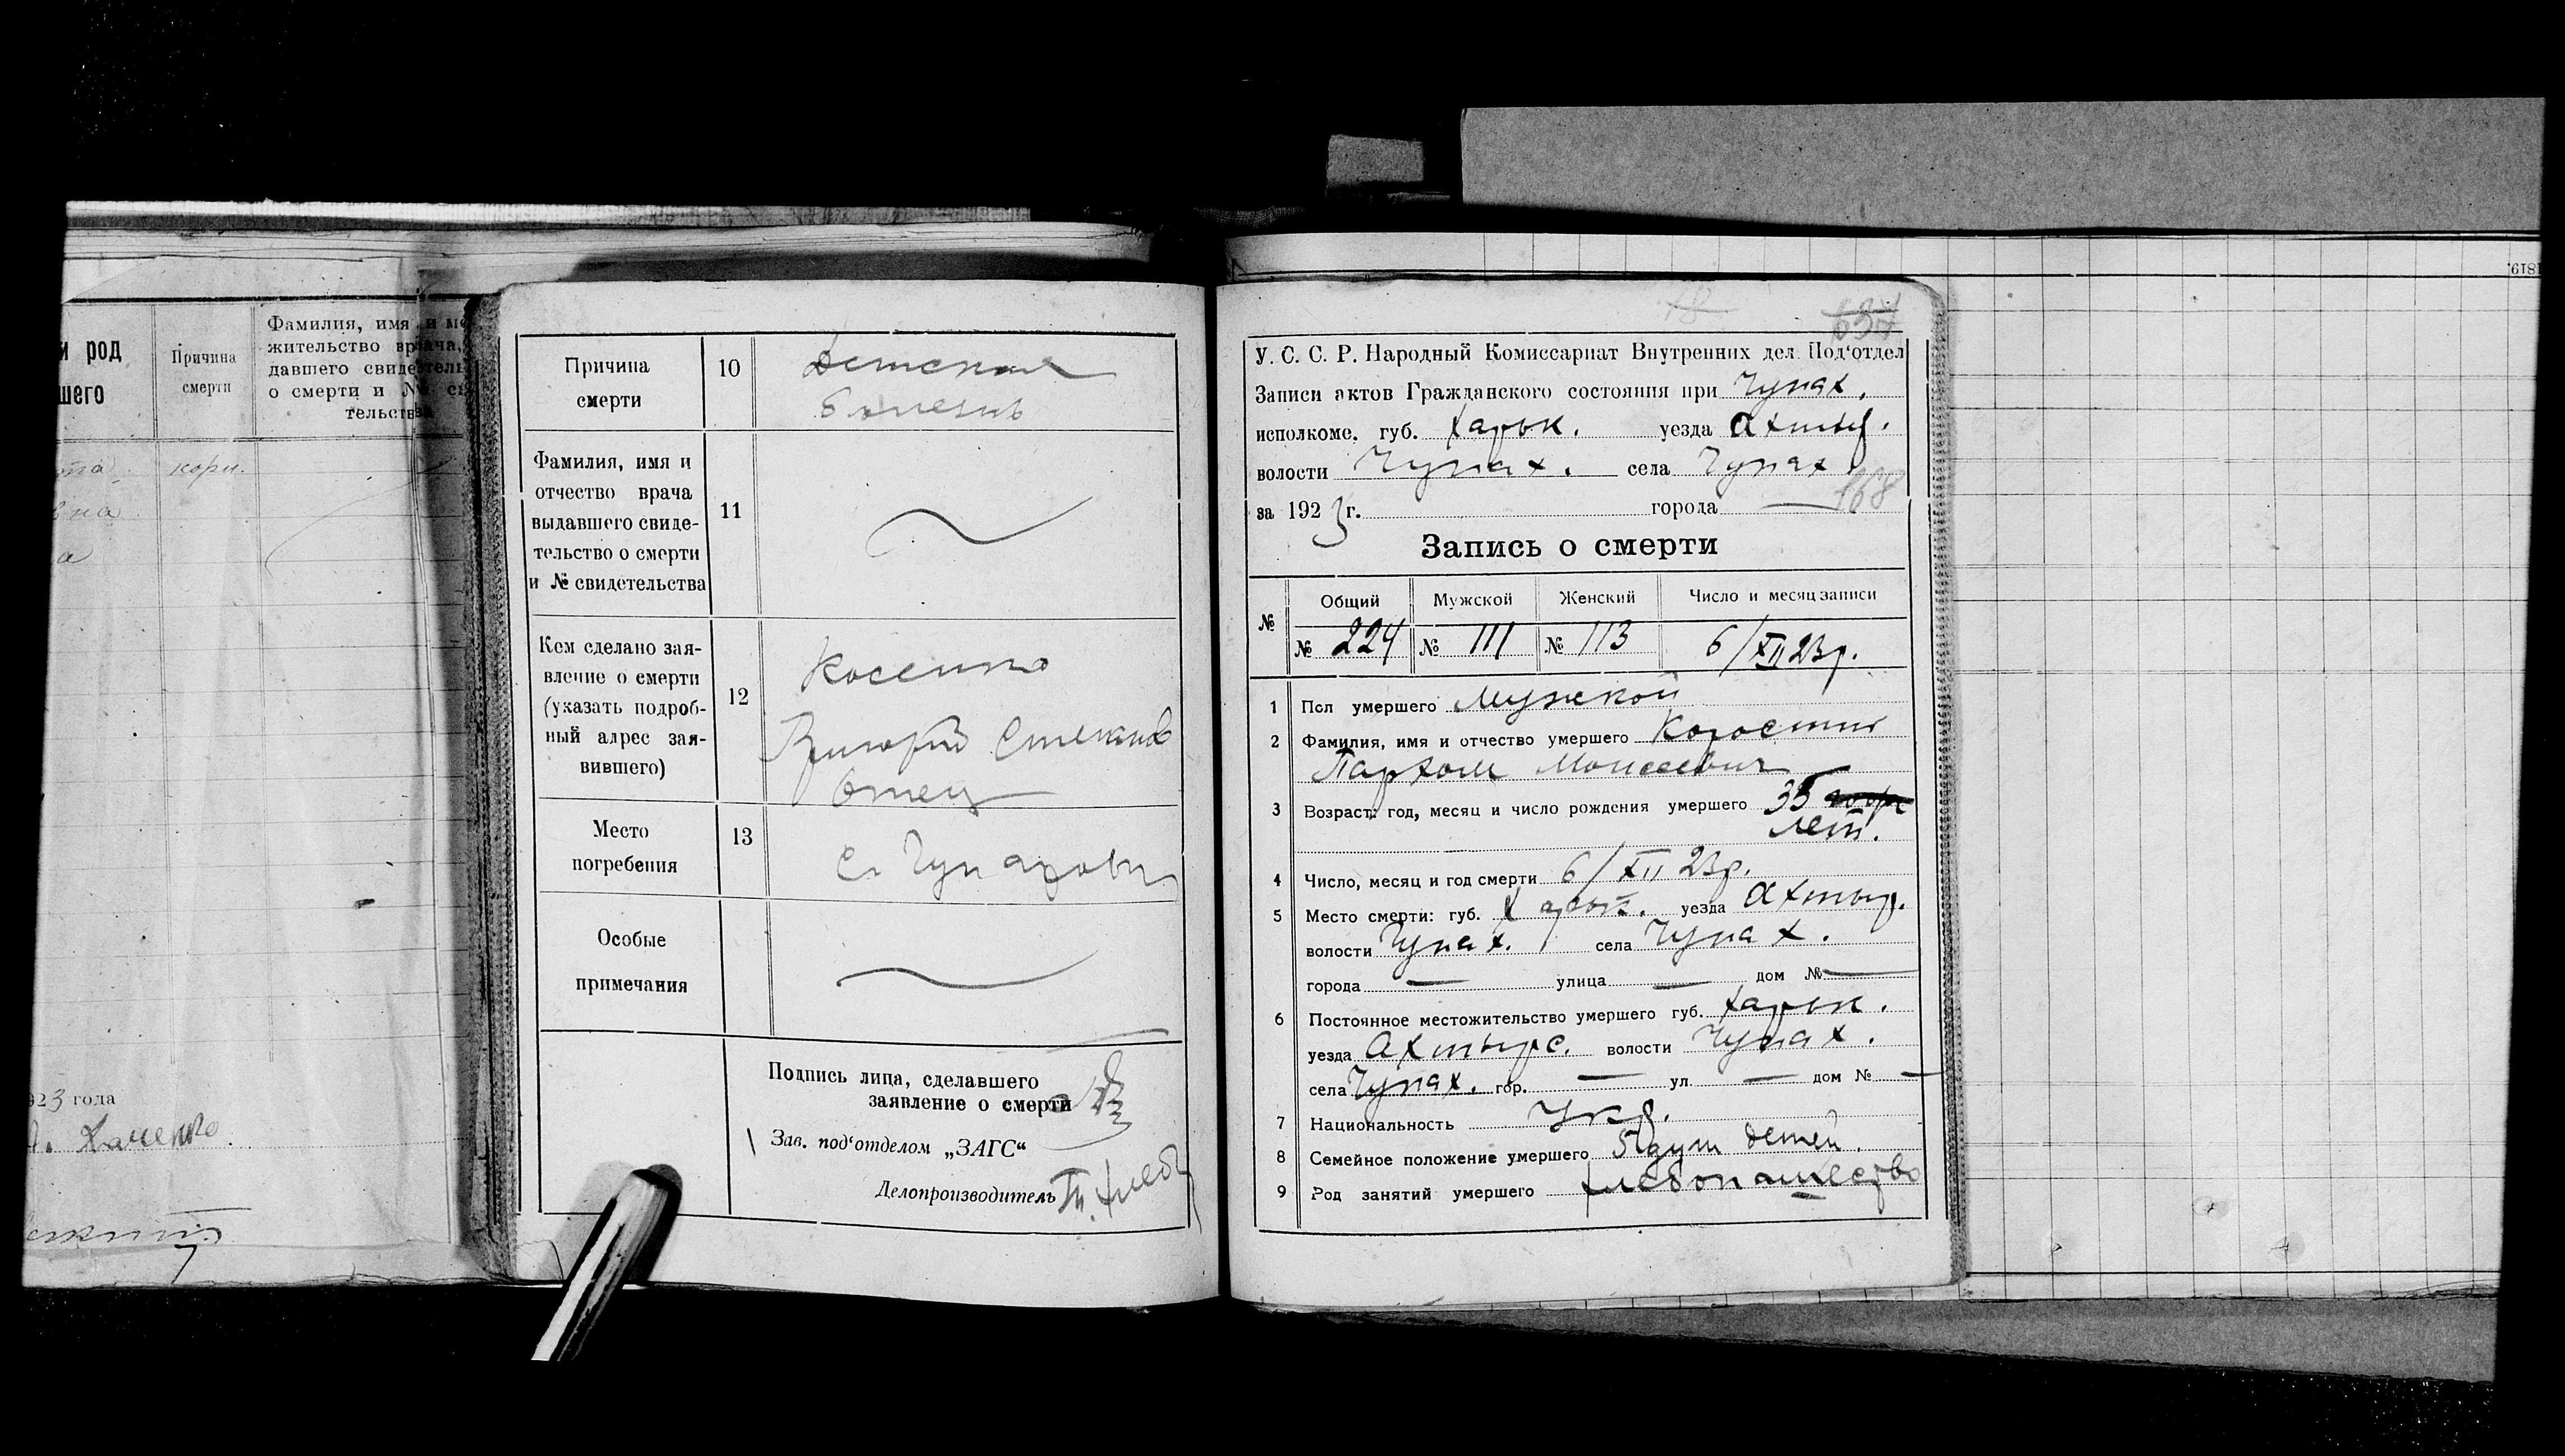 и род
шего
Причина
смерти
Фамилия, имя и ме
жительство врача,
давшего свидетель
о смерти и № св
тельства
кори.
923 года
Причина
смерти
10
Детская
болезнь
Фамилия, имя и
отчество врача
выдавшего свиде-
тельство о смерти
и № свидетельства
11
Кем сделано зая-
вление о смерти
(указать подроб-
ный адрес зая-
вившего)
12
Косенко
Григорий Степанов
Отец
Место
погребения
13
С. Чупаховк.
Особые
примечания
Подпись лица, сделавшего
заявление о смерти
Зав. под‘отделом „ЗАГС“
Делопроизводитель
637
У. С. С. Р. Народный Комиссариат Внутренних дел Под‘отдел
Записи актов Гражданского состояния при Чупах.
исполкоме. губ. Харьк. уезда Ахтыр.
волости Чупах. села Чупах.
168
за 1923 г. города —
Запись о смерти
№ Общий Мужской Женский Число и месяц записи
№ 224 № 111 № 113 6/XII 23 г.
1 Пол умершего Мужской
2 Фамилия, имя и отчество умершего Коростий
Пархом Моисеевич
3 Возраст: год, месяц и число рождения умершего 35
лет.
4 Число, месяц и год смерти 6/XII 23 г.
5 Место смерти: губ. Харьк. уезда Ахтыр.
волости Чупах. села Чупах.
города — улица — дом № —
6 Постоянное местожительство умершего губ. Харьк.
уезда Ахтырс. волости Чупах.
села Чупах. гор. — ул — дом № —
7 Национальность Укр.
8 Семейное положение умершего 5 душ детей.
9 Род занятий умершего хлебопашество